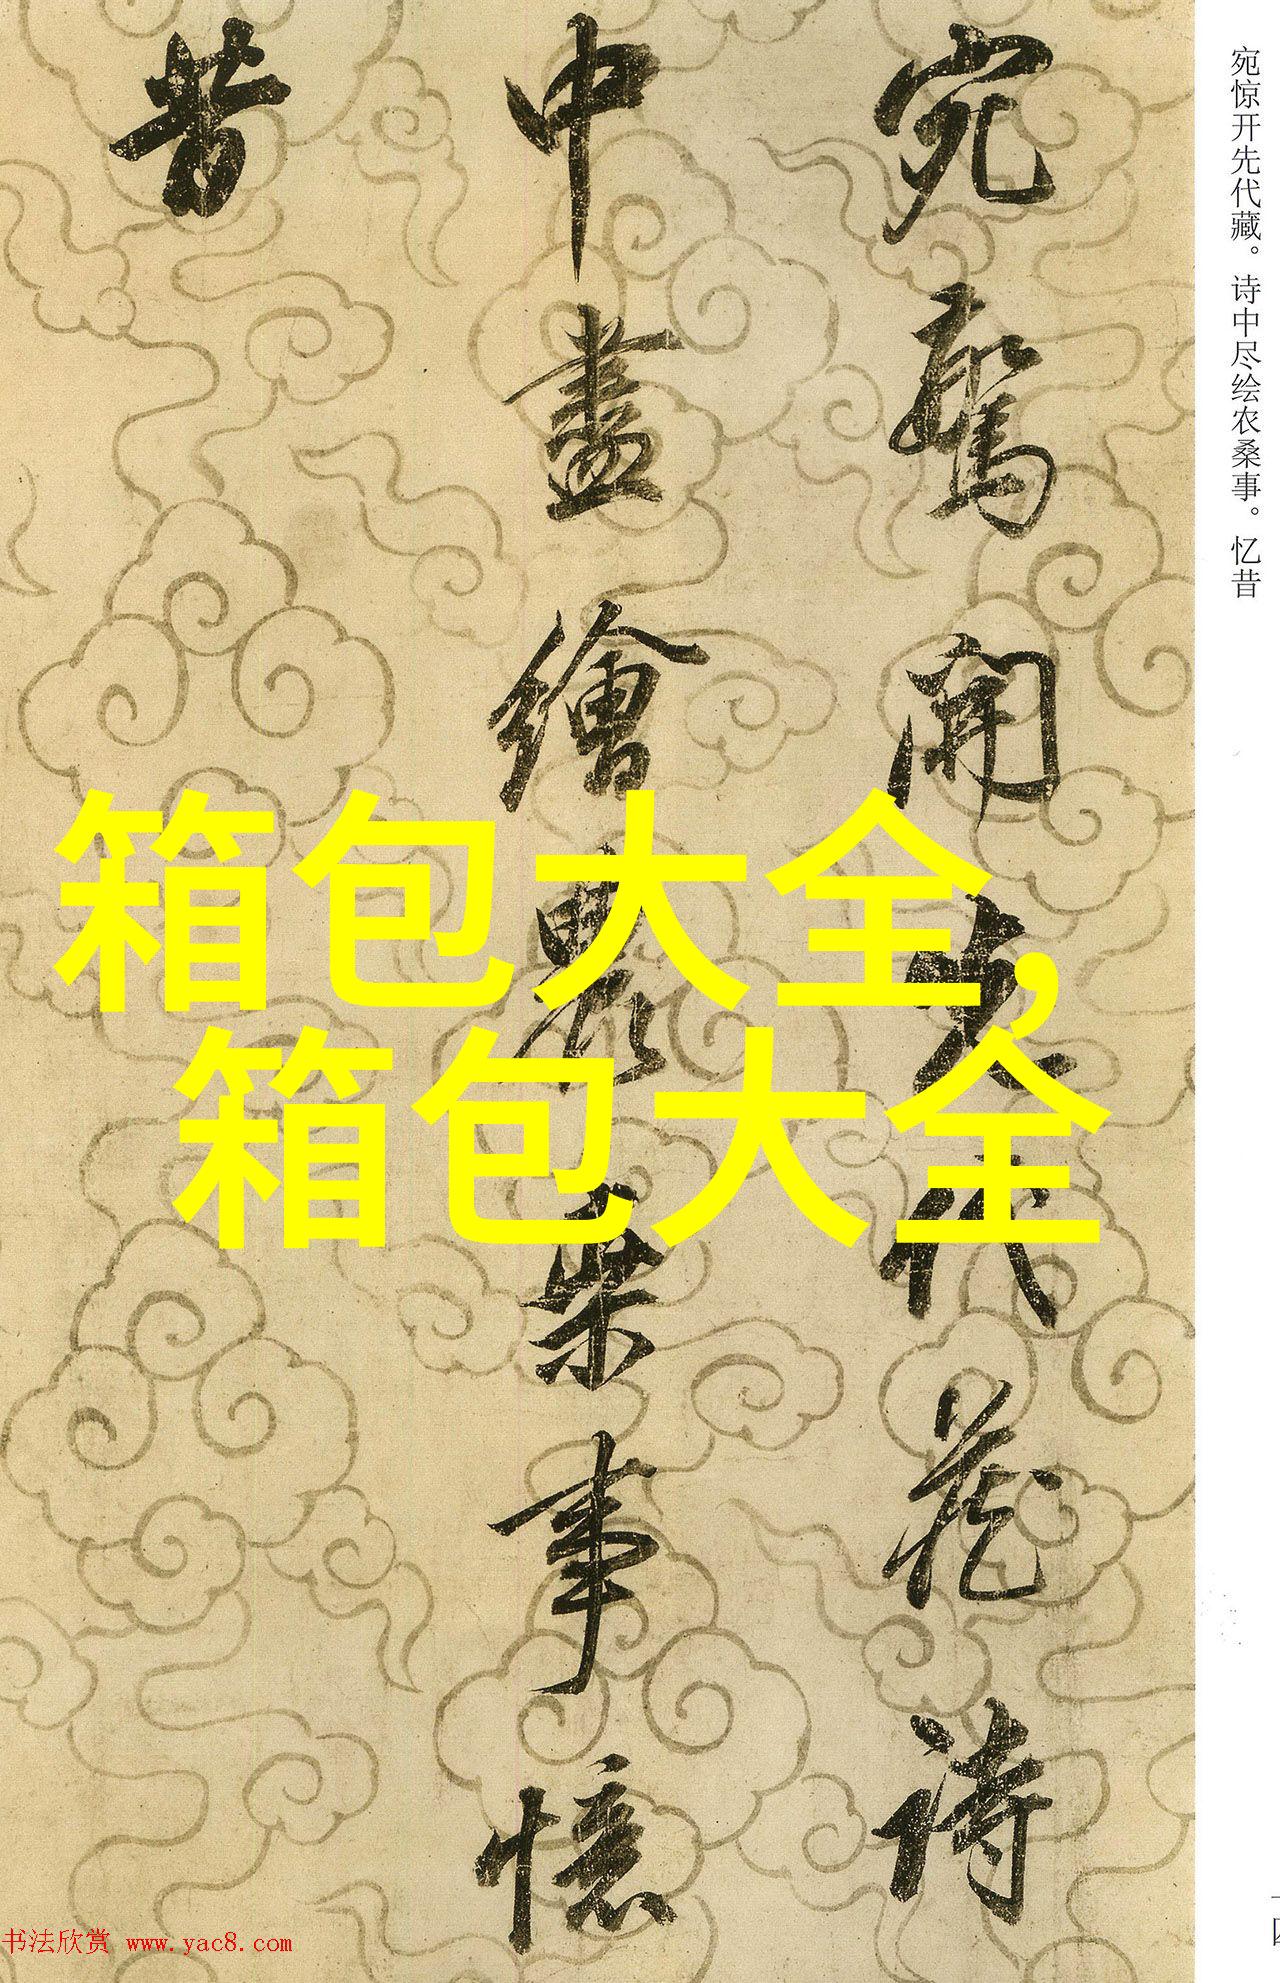 宛驚開先代藏詩
中盡繪農桑事憶
昔
宛惊开先代藏。诗中尽绘农桑事。忆昔
箱包大全,
箱包大全
书法欣赏 www.yac8.com